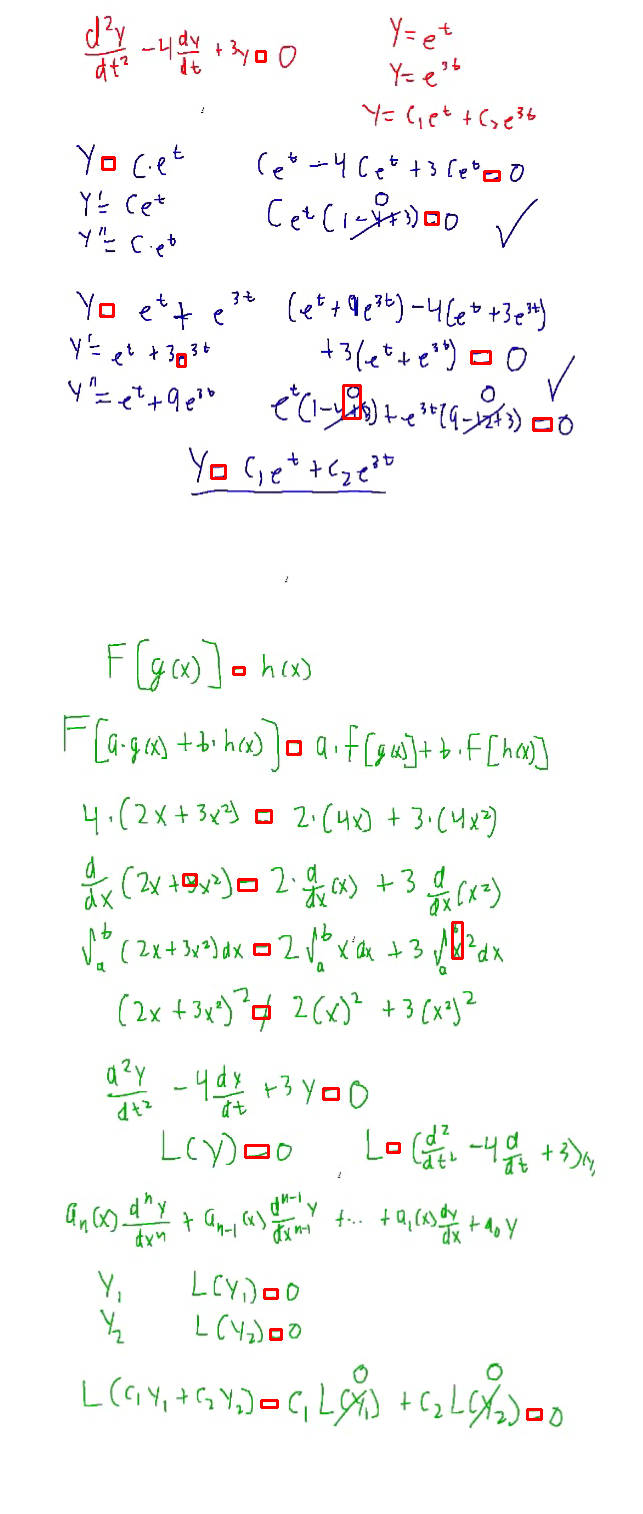 d²y/dt² - 4 dy/dt + 3y = 0
y = e^t
y = e^{3t}
y = c₁e^t + c₂e^{3t}
y = c·e^t
Ce^t - 4Ce^t + 3Ce^t = 0
y' = Ce^t
Ce^t(1-4+3) = 0 ✓
y'' = C·e^t
y = e^t + e^{3t}
(e^t + 9e^{3t}) - 4(e^t + 3e^{3t})
y' = e^t + 3e^{3t}
+3(e^t + e^{3t}) = 0 ✓
y'' = e^t + 9e^{3t}
e^t(1-4+3) + e^{3t}(9-12+3) = 0
y = c₁e^t + c₂e^{3t}
F[g(x)] = h(x)
F[a·g(x) + b·h(x)] = a·F[g(x)] + b·F[h(x)]
4·(2x + 3x²) = 2·(4x) + 3·(4x²)
d/dx (2x + 3x²) = 2·d/dx (x) + 3 d/dx (x²)
∫_a^b (2x + 3x²) dx = 2∫_a^b x dx + 3∫_a^b x² dx
(2x + 3x²)² ≠ 2(x)² + 3(x²)²
d²y/dt² - 4 dy/dt + 3y = 0
L(y) = 0
L = (d²/dt² - 4 d/dt + 3)
a_n(x) d^n y/dx^n + a_{n-1}(x) d^{n-1}y/dx^{n-1} + ... + a₁(x) dy/dx + a₀y
y₁ L(y₁) = 0
y₂ L(y₂) = 0
L(c₁y₁ + c₂y₂) = c₁L(y₁) + c₂L(y₂) = 0